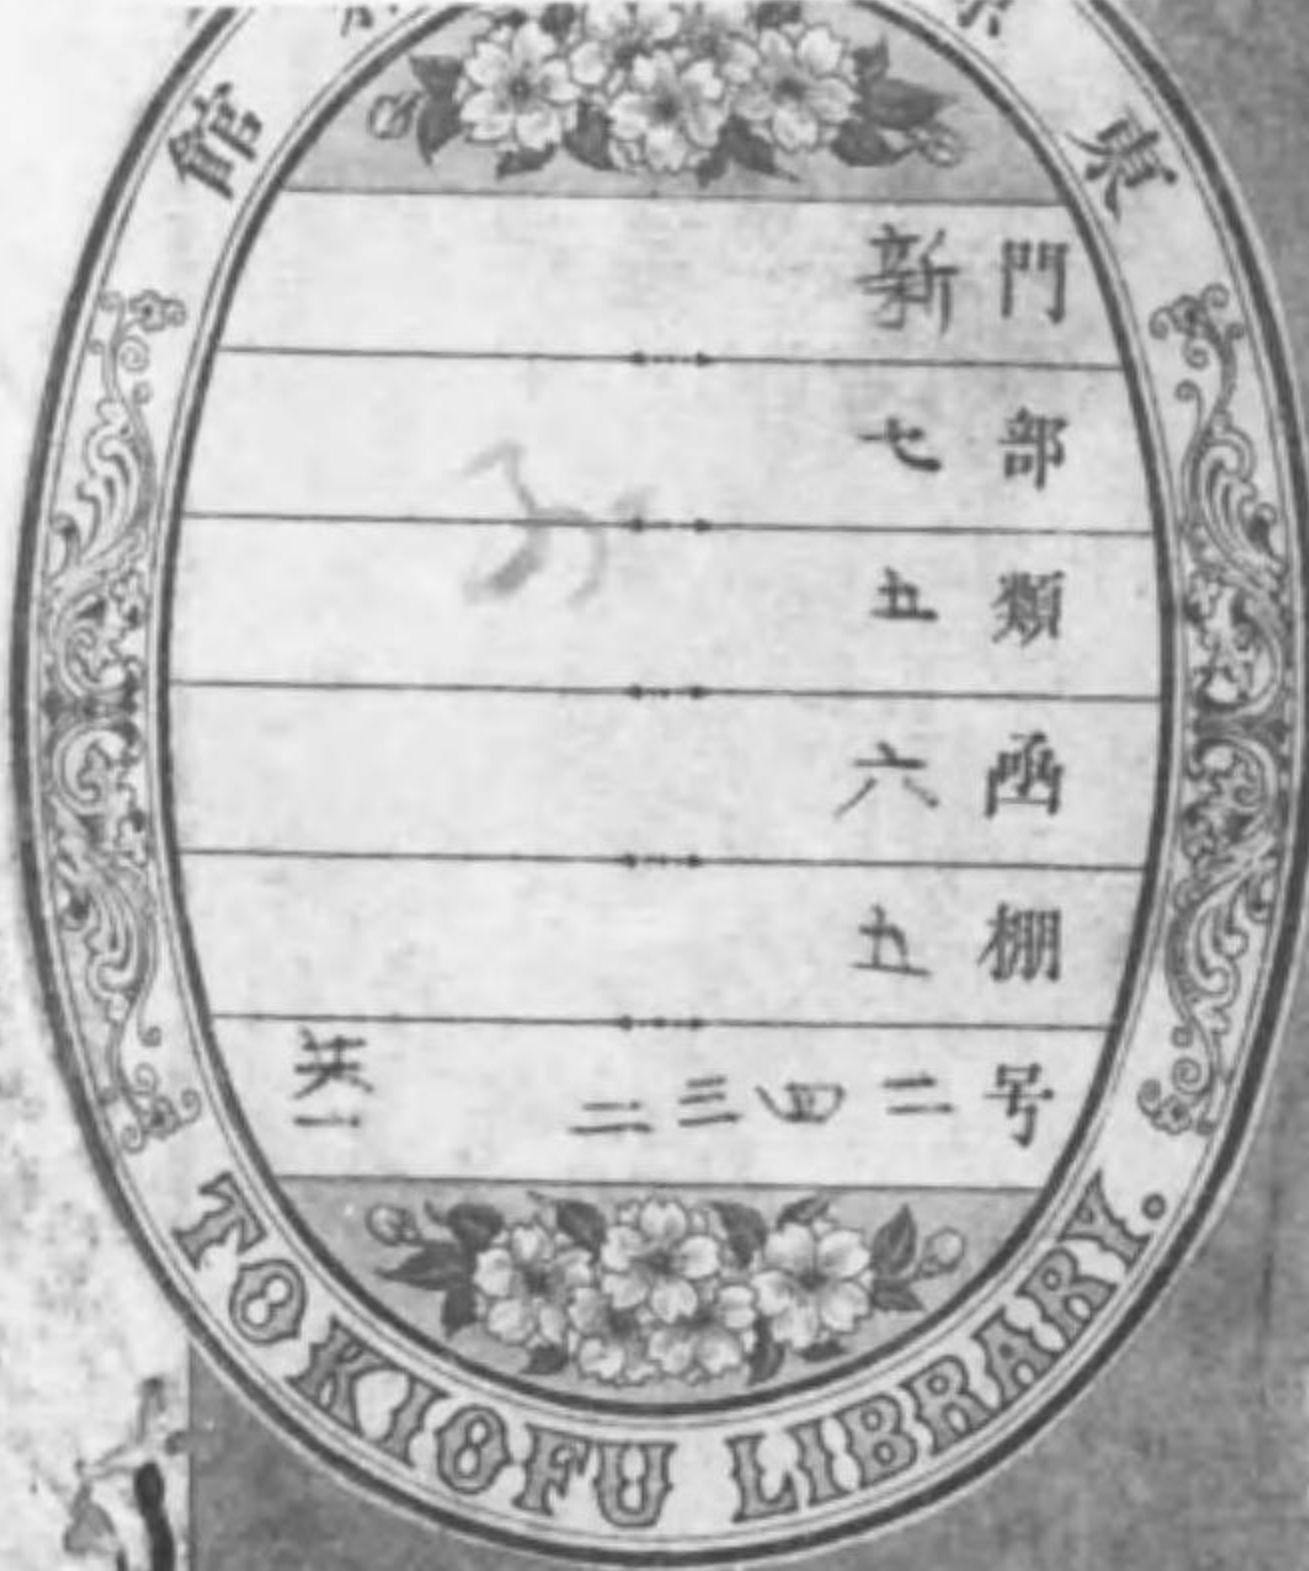 東
館
門 新
部 七
類 五
函 六
棚 五
号 二四三二 共
TOKIOFU LIBRARY.